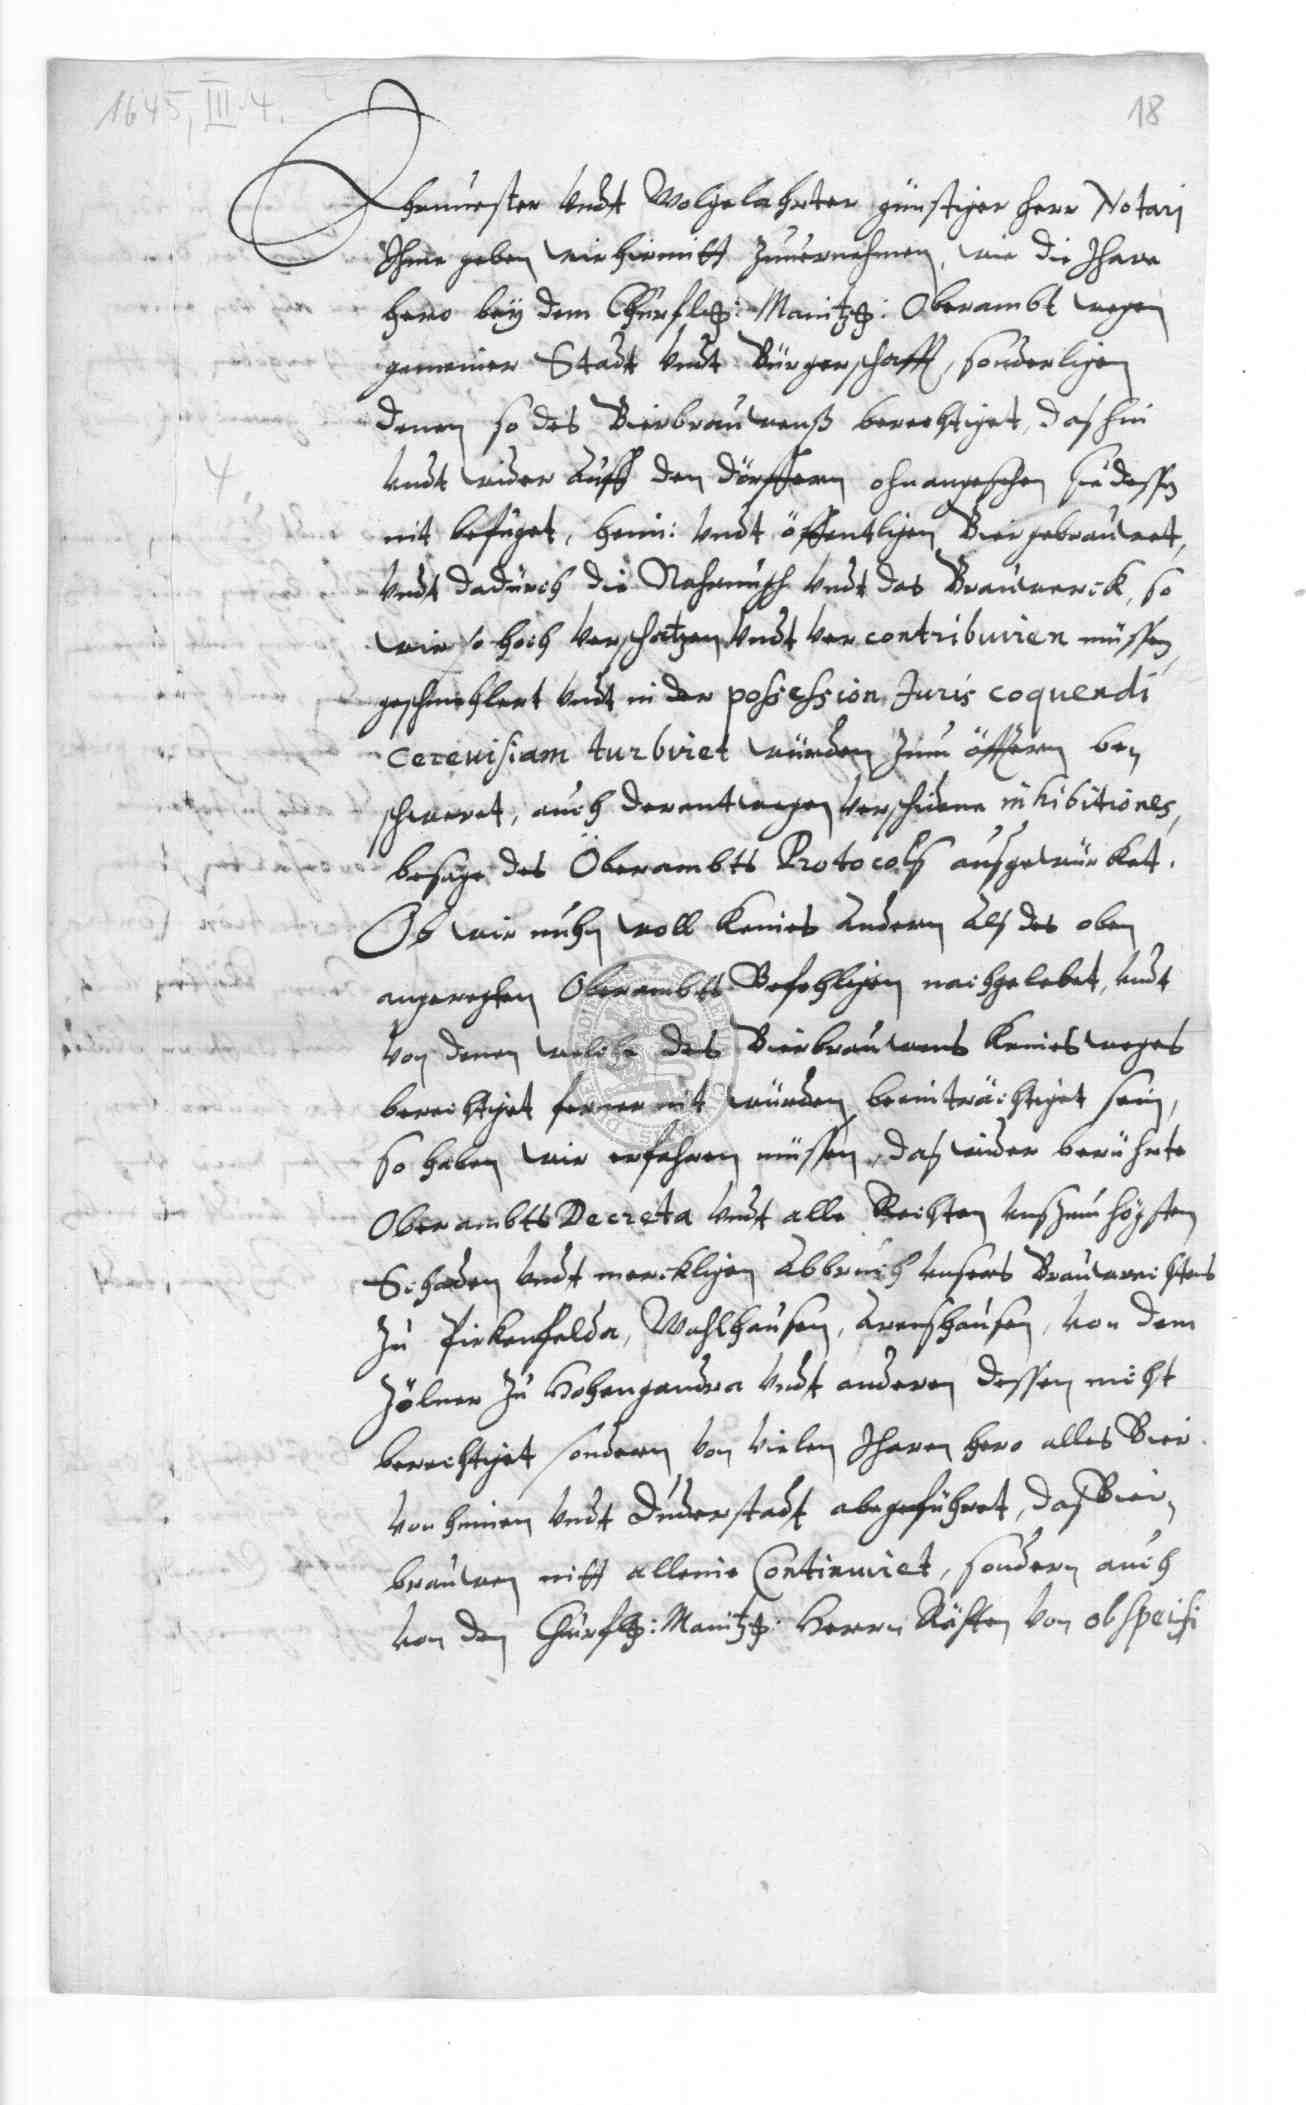 1645, III. 4.
18
Ehrnuester Undt Wolgelahrter günstiger Herr Notari
Ihme geben wir hiemitt zuuernehmen, wie die Ihare
hero bey dem Churfltz: Maintzz: Oberambt wegen
gemeiner Stadt Undt Bürgerschafft, sonderligen
denen so des Bierbrauwenß berechtiget, das hin
Undt wider Auff den dörffern ohnangesehen sie dessen
nit befuget, heim: Undt öffentligen Bier gebrauwet,
Undt dadurch die Nahrungh Undt das Brauwerck, so
wir so hoch Verschatzen Undt Vercontribuiren müssen,
geschmehlert Undt in der possession Juris coquendi
cereuisiam turbiret würden zum öfftern be„
schweret, auch derentwegen Verschidene inhibitiones,
besage des Oberambts Protocols ausgewürket.
Ob wir nuhn woll Keines Andern Als des oben
angeregten Oberambts Befehligen nachgelebet, Undt
Von denen welche des Bierbrauwens Keines weges
berechtiget ferner nit würden beeinträchtiget sein,
so haben wir erfahren müssen, das wider berührte
Oberambts Decreta Undt alle Rechten Uns zum högsten
Schaden Undt merckligen Abbruch Unsers Brauwrechtens
Zu Pirkenfelda, Wahlhausen, Arenshausen, Von dem
Zölner Zu Hohengandra Undt anderen dessen nicht
berechtiget sondern Von Vielen Iharen hero alles Bier
Von hinnen Undt Duderstadt abgeführet, das Bier„
brauwen nitt alleine Continuiret, sondern auch
Von den Churfltz: Maintzz: Herrn Räthen Von